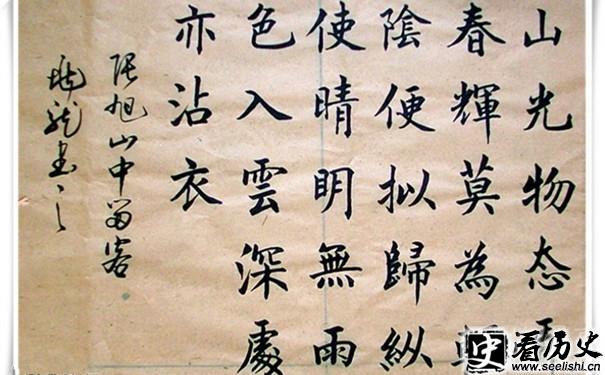 山光物态
春輝莫為
陰便拟歸纵
使晴明無雨
色入雲深處
亦沾衣
張旭山中留客
史 看历史
www.seelishi.cn